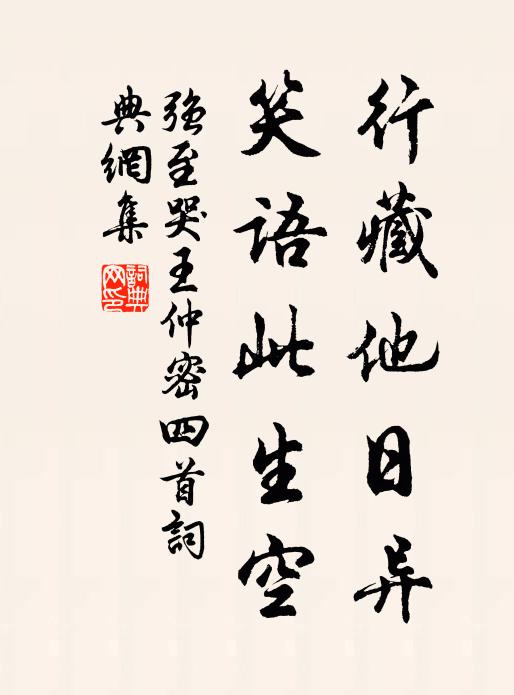 行藏他日异
笑语此生空
强至哭王仲密四首词
典网集
词典网印